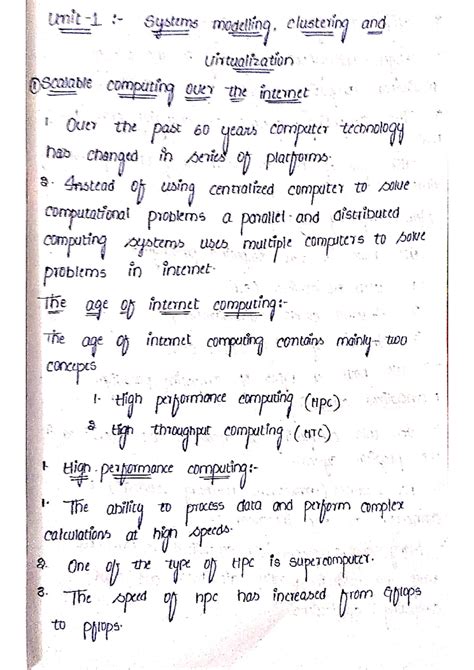 Unit-1 :- Systems modelling, clustering and
virtualization
① Scalable computing over the internet
1. Over the past 60 years computer technology
has changed in series of platforms.
2. Instead of using centralized computer to solve
computational problems a parallel and distributed
computing systems uses multiple computers to solve
problems in internet.
The age of internet computing:-
The age of internet computing contains mainly two
concepts
1. High performance computing (HPC)
2. High throughput computing (HTC)
1. High performance computing:-
1. The ability to process data and perform complex
calculations at high speeds.
2. One of the type of HPC is supercomputer.
3. The speed of HPC has increased from Gflops
to pflops.